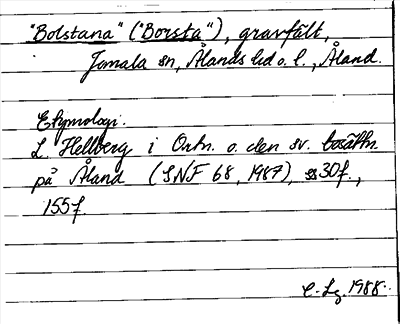 "Bolstana" ("Borsta"), gravfält,
Jomala sn, Ålands hd o. l., Åland.
Etymologi.
L. Hellberg i Ortn. o. den sv. bosättn.
på Åland (SNF 68, 1987), ss 30f.,
155f.
C-Lg. 1988.